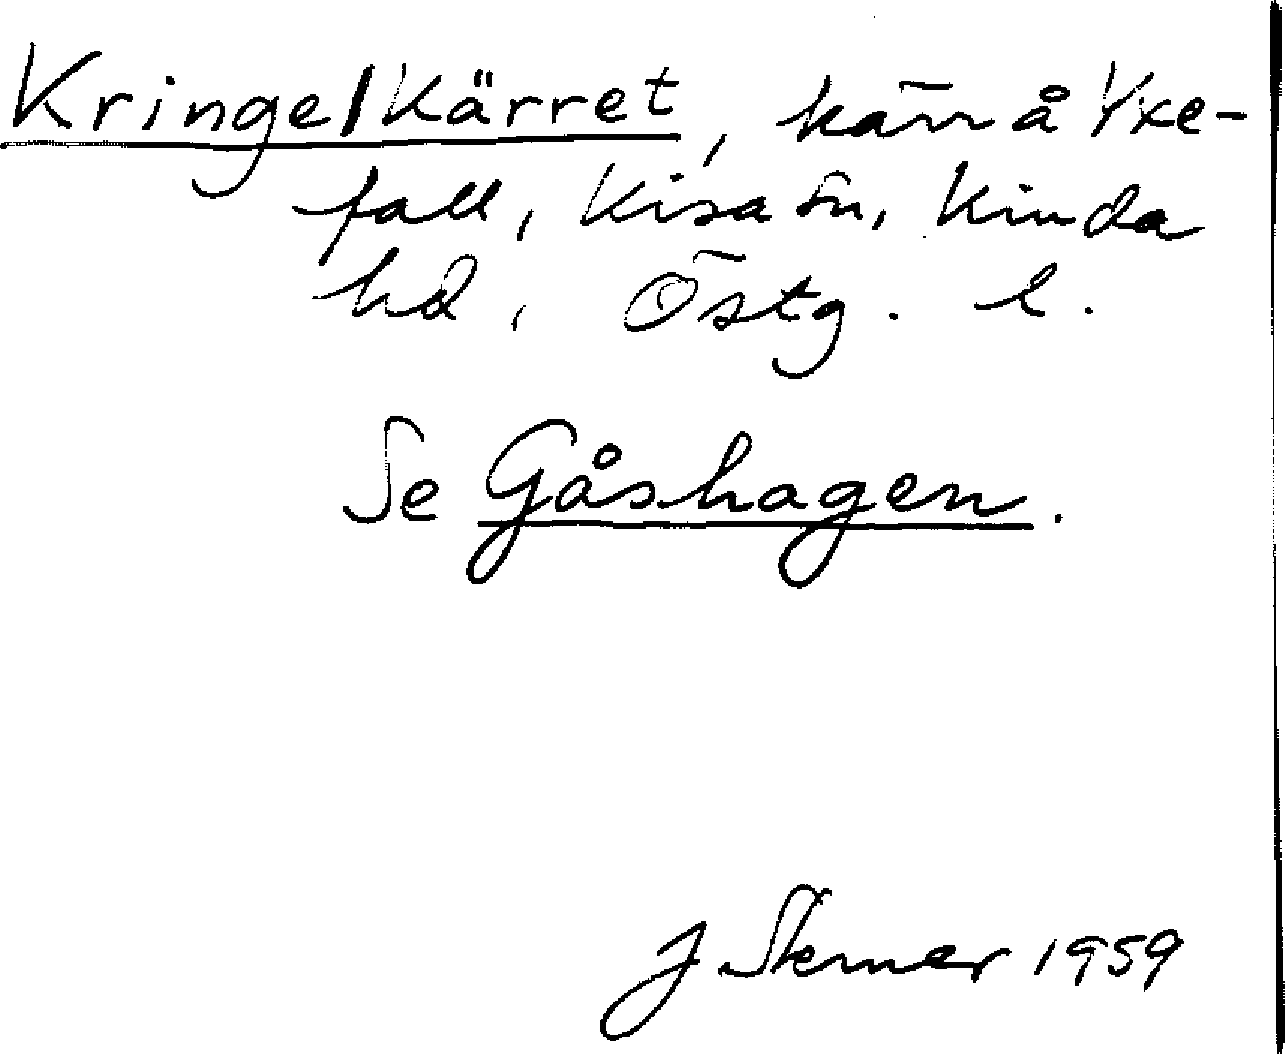 Kringelkärret, kärr å Yxe-
fall, Kisa sn, Kinda
hd, Östg. l.
Se Gåshagen.
J Sterner 1959